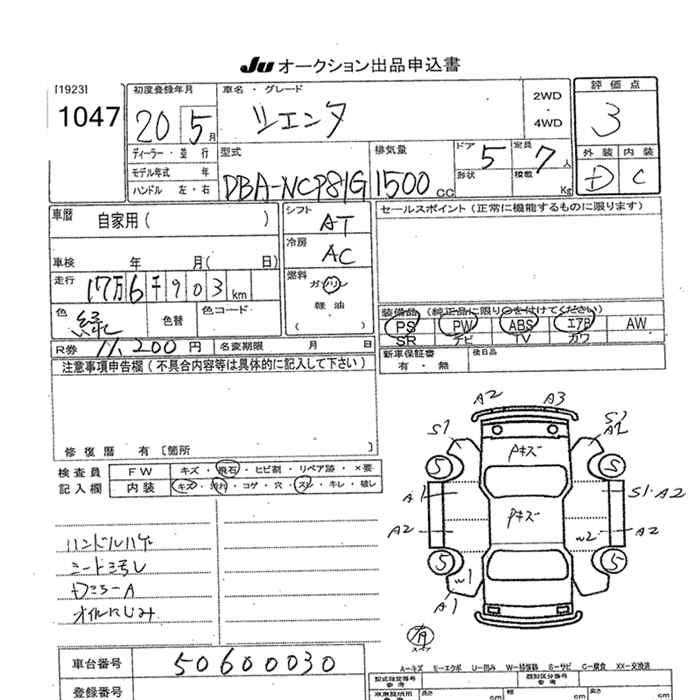 Ju オークション出品申込書
[1923]
1047
初度登録年月
20 5月
車名・グレード
シエンタ
2WD
・
4WD
評価点
3
外装 内装
D C
ディーラー・並行
モデル年式 年
ハンドル 左・右
型式
DBA-NCP81G
排気量
1500 CC
ドア 5
形状
定員 7人
積載 Kg
車歴 自家用( )
車検 年 月( 日)
走行 17万6千903km
色 緑
色替
色コード
R券 11,200円 名変期限 月 日
シフト AT
冷房 AC
燃料 ガソリン
軽油
( )
セールスポイント(正常に機能するものに限ります)
装備品(純正品に限り○を付けてください)
PS PW ABS エアB AW
SR ナビ TV カワ
新車保証書 後日品
有・無
注意事項申告欄(不具合内容等は具体的に記入して下さい)
修復歴 有〔箇所 〕
検査員 FW キズ・飛石・ヒビ割・リペア跡・×要
記入欄 内装 キズ・汚れ・コゲ・穴・スレ・キレ・破レ
ハンドルハゲ
シート3号レ
オイルにじみ
A2 A3
S1 S2
A1
Pキズ
5 5
A1 S1・A2
Pキズ
A2 W2 A2
5 5
W1
A1
有
A-キズ E-エクボ U-凹み W-補修跡 S-サビ C-腐食 XX-交換済
車台番号 50600030
登録番号
型式指定番号
参考
類別区分番号
参考
長さ cm 幅 cm 高さ cm